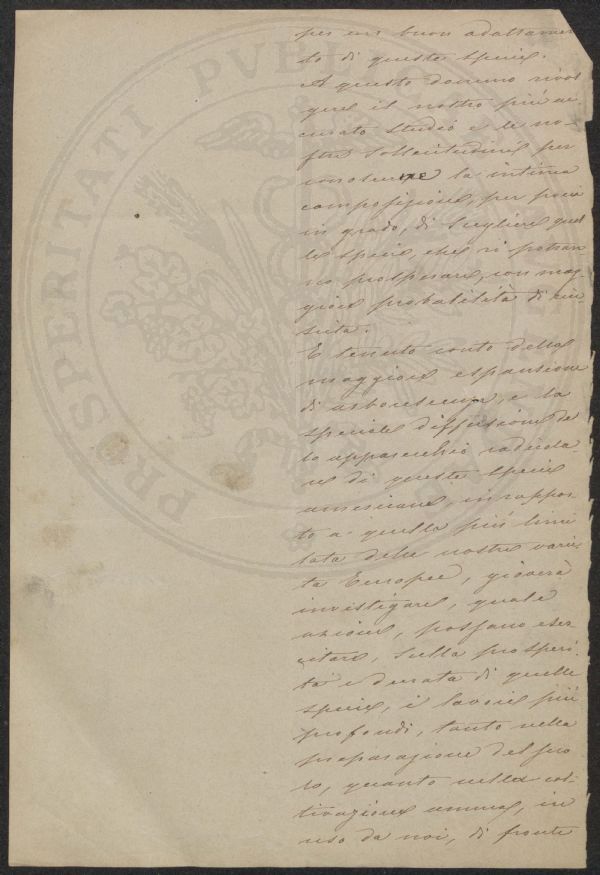 PROSPERITATI PVBLI
per un buon adattamen-
to di queste specie.
A questo devono rivol
gersi il nostro più ac
curato studio e le no-
stre sollecitudini per
conoscere la intima
composizione, per poi
in grado, di scegliere quel
le specie, che vi potran
no prosperare, con mag
giore probabilità di riu-
scita.
E tenuto conto della
maggiore espansione
di arborescenza, e la
speciale diffusione del
lo apparecchio radicola
re di queste specie
americane, in rappor
to a quella più limi
tata delle nostre varie
tà Europee, gioverà
investigare, quale
azione, possano eser
citare, sulla prosperi
tà e durata di quelle
specie, i lavori più
profondi, tanto nella
preparazione del suo
lo, quanto nella col-
tivazione annua, in
uso da noi, di fronte